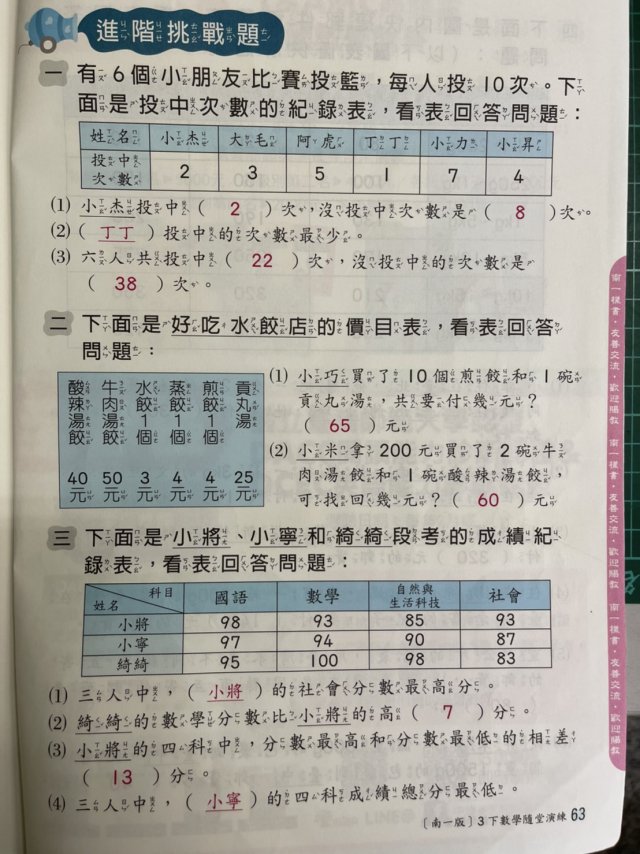 進階挑戰題
一 有6個小朋友比賽投籃，每人投10次。下
面是投中次數的紀錄表，看表回答問題：
姓名 小杰 大毛 阿虎 丁丁 小力 小昇
投中次數 2 3 5 1 7 4
(1) 小杰投中（ 2 ）次，沒投中次數是（ 8 ）次。
(2)（ 丁丁 ）投中的次數最少。
(3) 六人共投中（ 22 ）次，沒投中的次數是
（ 38 ）次。
二 下面是好吃水餃店的價目表，看表回答
問題：
酸辣湯餃 40元
牛肉湯餃 50元
水餃1個 3元
蒸餃1個 4元
煎餃1個 4元
貢丸湯 25元
(1) 小巧買了10個煎餃和1碗
貢丸湯，共要付幾元？
（ 65 ）元
(2) 小米拿200元買了2碗牛
肉湯餃和1碗酸辣湯餃，
可找回幾元？（ 60 ）元
三 下面是小將、小寧和綺綺段考的成績紀
錄表，看表回答問題：
科目 姓名 國語 數學 自然與生活科技 社會
小將 98 93 85 93
小寧 97 94 90 87
綺綺 95 100 98 83
(1) 三人中，（ 小將 ）的社會分數最高分。
(2) 綺綺的數學分數比小將的高（ 7 ）分。
(3) 小將的四科中，分數最高和分數最低的相差
（ 13 ）分。
(4) 三人中，（ 小寧 ）的四科成績總分最低。
〔南一版〕3下數學隨堂演練 63
南一樣書・友善交流・歡迎賜教
南一樣書・友善交流・歡迎賜教
南一樣書・友善交流・歡迎賜教